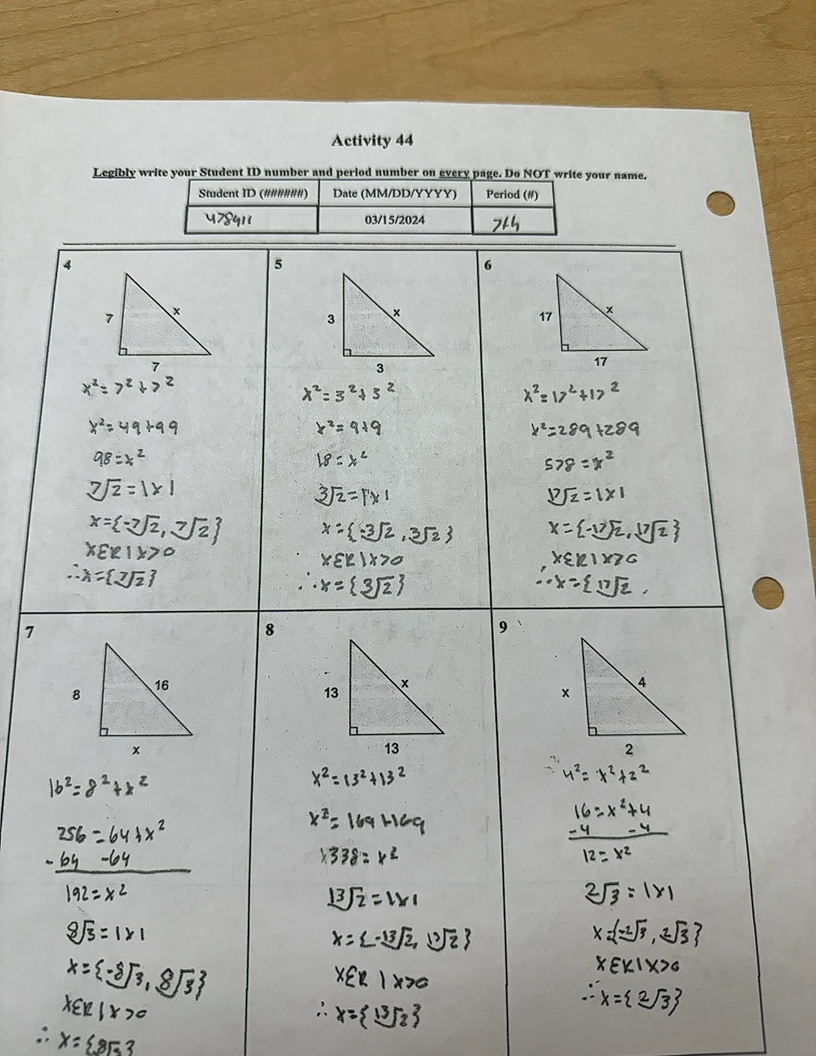 Activity 44
Legibly write your Student ID number and period number on every page. Do NOT write your name.
Student ID (######) Date (MM/DD/YYYY) Period (#)
478411 03/15/2024 7th
4
7
x
7
x²=7²+7²
x²=49+49
98=x²
7√2=|x|
x={-7√2, 7√2}
xεℝ|x>0
∴x={7√2}
5
3
x
3
x²=3²+3²
x²=9+9
18=x²
3√2=|x|
x={-3√2, 3√2}
xεℝ|x>0
∴x={3√2}
6
17
x
17
x²=17²+17²
x²=289+289
578=x²
17√2=|x|
x={-17√2, 17√2}
xεℝ|x>0
∴x={17√2
7
8
16
x
16²=8²+x²
256=64+x²
-64 -64
192=x²
8√3=|x|
x={-8√3, 8√3}
xεℝ|x>0
∴x={8√3}
8
13
x
13
x²=13²+13²
x²=169+169
338=x²
13√2=|x|
x={-13√2, 13√2}
xεℝ|x>0
∴x={13√2}
9
x
4
2
4²=x²+2²
16=x²+4
-4 -4
12=x²
2√3=|x|
x={-2√3, 2√3}
xεℝ|x>0
∴x={2√3}